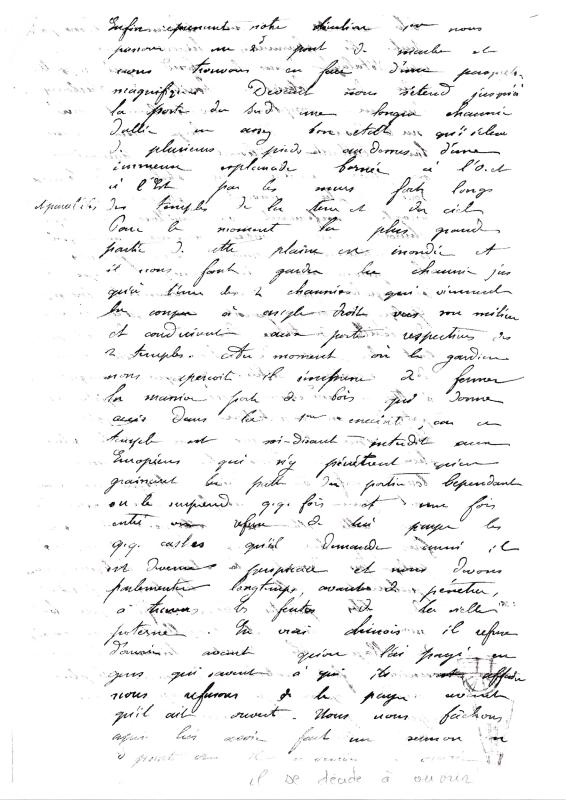 Enfin reprenant notre direction nous
passons un 2d pont de marbre et
nous trouvons en face d'une perspective
magnifique Devant nous s'étend jusqu'à
la porte du Sud une longue chaussée
dallée en assez bon état qui s'élève
de plusieurs pieds au dessus d'une
immense esplanade bornée à l'O. et
à l'Est par les murs forts longs
et parallèles des temples de la terre et du ciel
Pour le moment la plus grande
partie de cette plaine est inondée et
il nous faut garder la chaussée jus
qu'à l'une des 2 chaussées qui viennent
la couper à angle droit vers son milieu
et conduisent aux portes respectives des
2 temples. Au moment où le gardien
nous aperçoit il s'empresse de fermer
la porte de bois qui donne
accès dans la 1ère enceinte, car ce
temple est soi-disant interdit aux
Européens qui n'y pénètrent qu'en
graissant la patte du portier Cependant
on le surprend q.q. fois et une fois
entré refuse de lui payer les
q.q. cashes qu'il demande aussi il
est devenu et nous devons
parlementer longtemps, avant de pénétrer,
à travers les fentes de la
poterne. En vrai chinois il refuse
d'ouvrir avant qu'on l'ait payé en
gens qui savent à qui ils ont affaire
nous refusons de le payer avant
qu'il ait ouvert. Nous nous fâchons
après lui avoir fait un sermon
il se décide à ouvrir